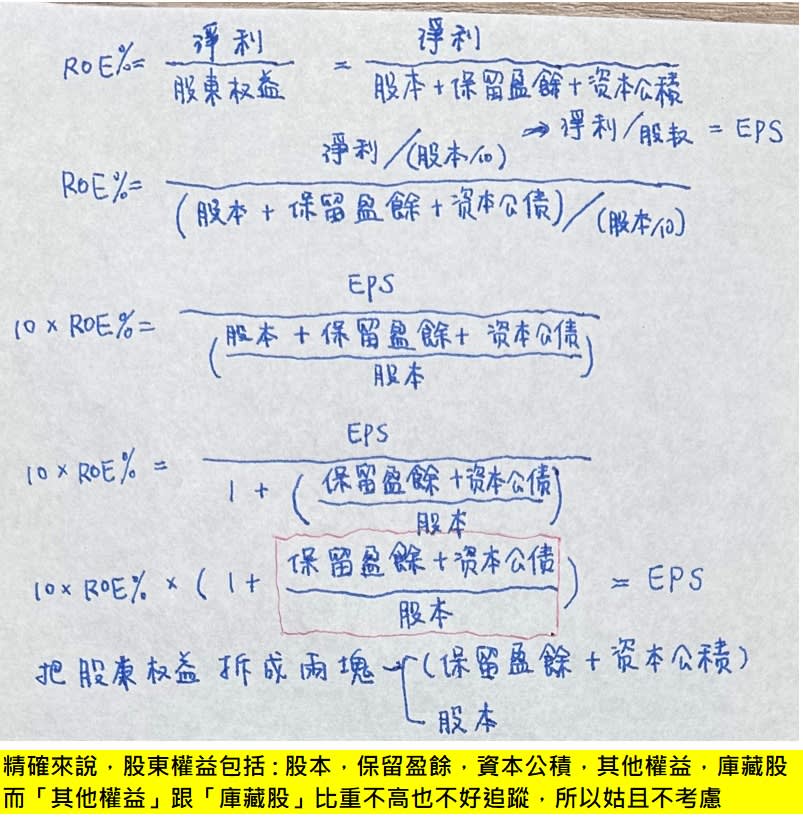 ROE%= 淨利 / 股東权益 = 淨利 / 股本+保留盈餘+资本公積
⇒ 淨利/股数 = EPS
ROE%= 淨利/(股本/10) / (股本+保留盈餘+资本公債)/(股本/10)
10 × ROE%= EPS / (股本+保留盈餘+资本公債 / 股本)
10 × ROE% = EPS / 1+(保留盈餘+资本公債 / 股本)
10× ROE% × (1+ 保留盈餘+资本公債 / 股本) = EPS
把股東权益拆成兩塊 (保留盈餘+资本公積)
股本
精確來說，股東權益包括:股本，保留盈餘，資本公積，其他權益，庫藏股
而「其他權益」跟「庫藏股」比重不高也不好追蹤，所以姑且不考慮